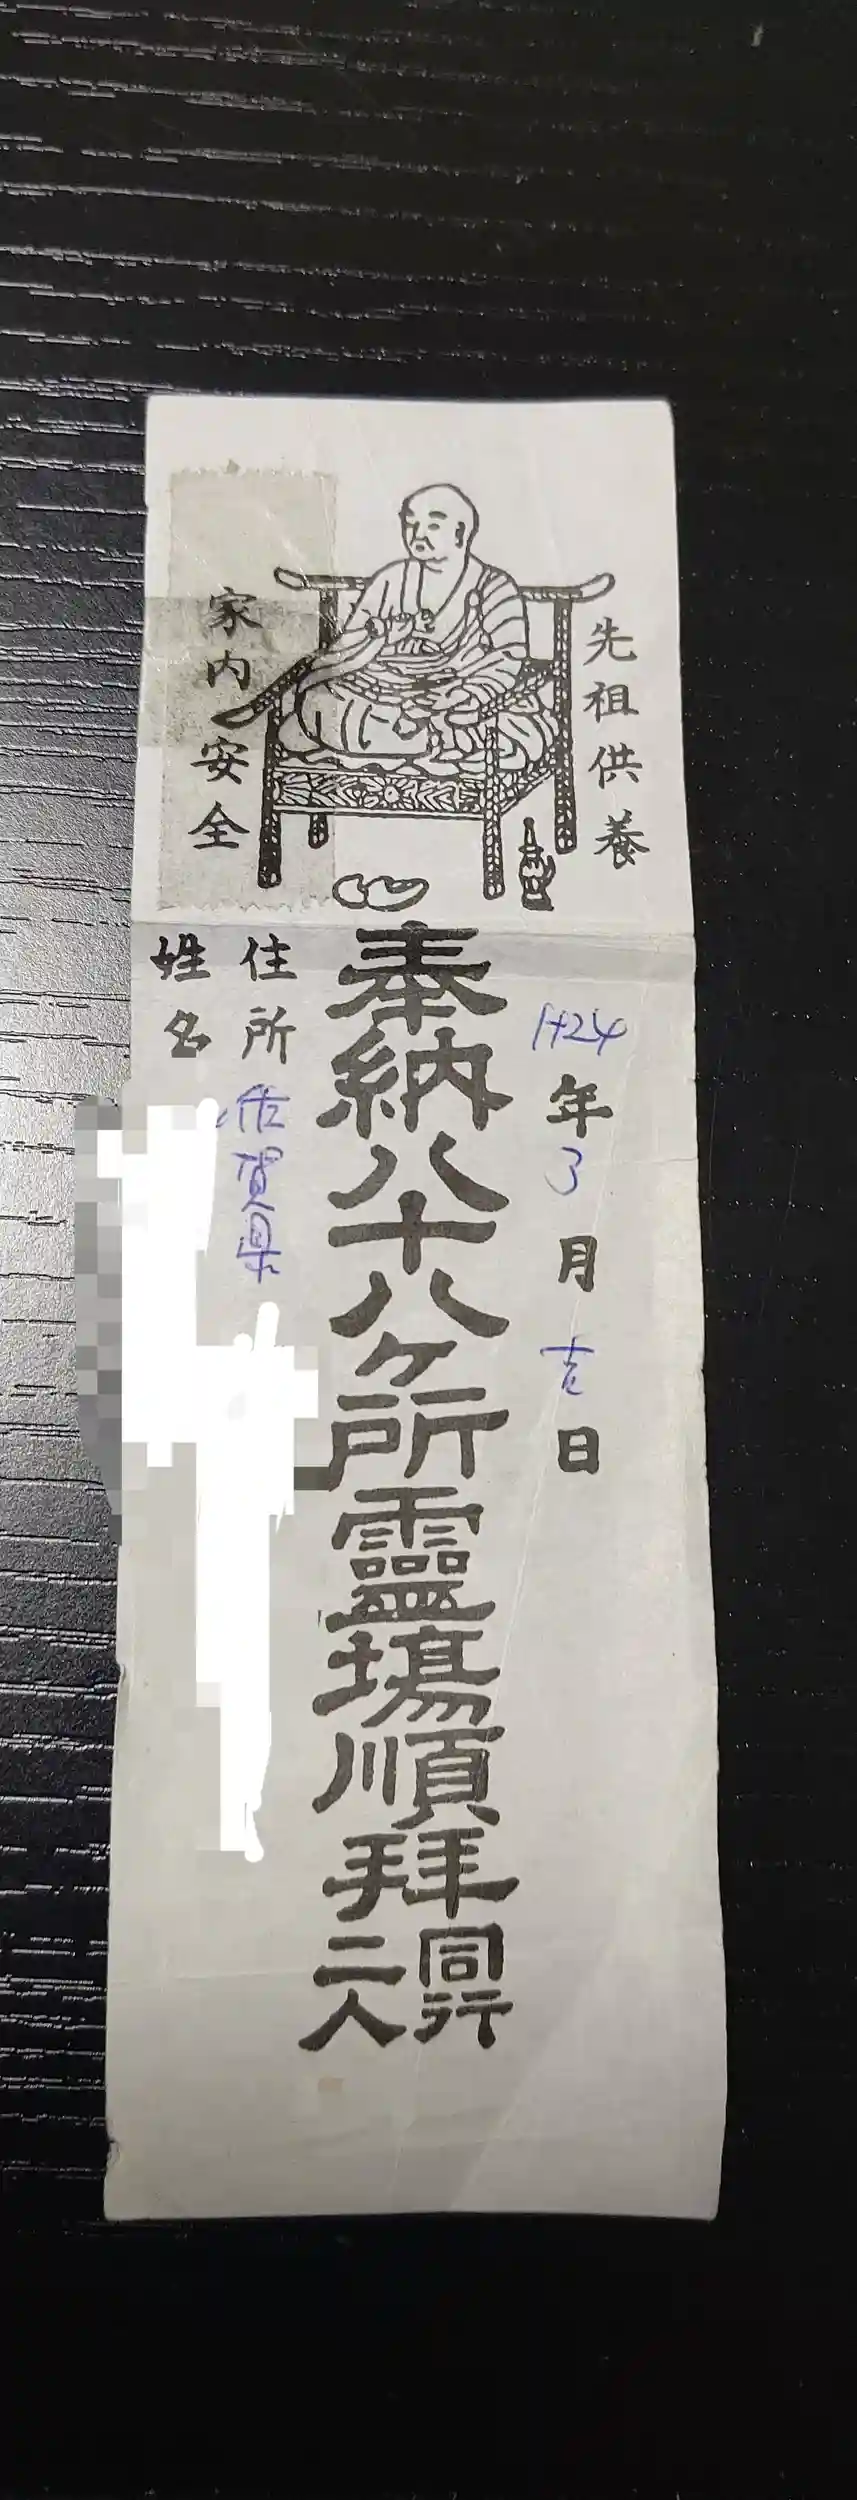 先祖供養
家内安全
H24年3月吉日
奉納八十八ヶ所霊場順拝
同行
二人
住所 佐賀県
姓名